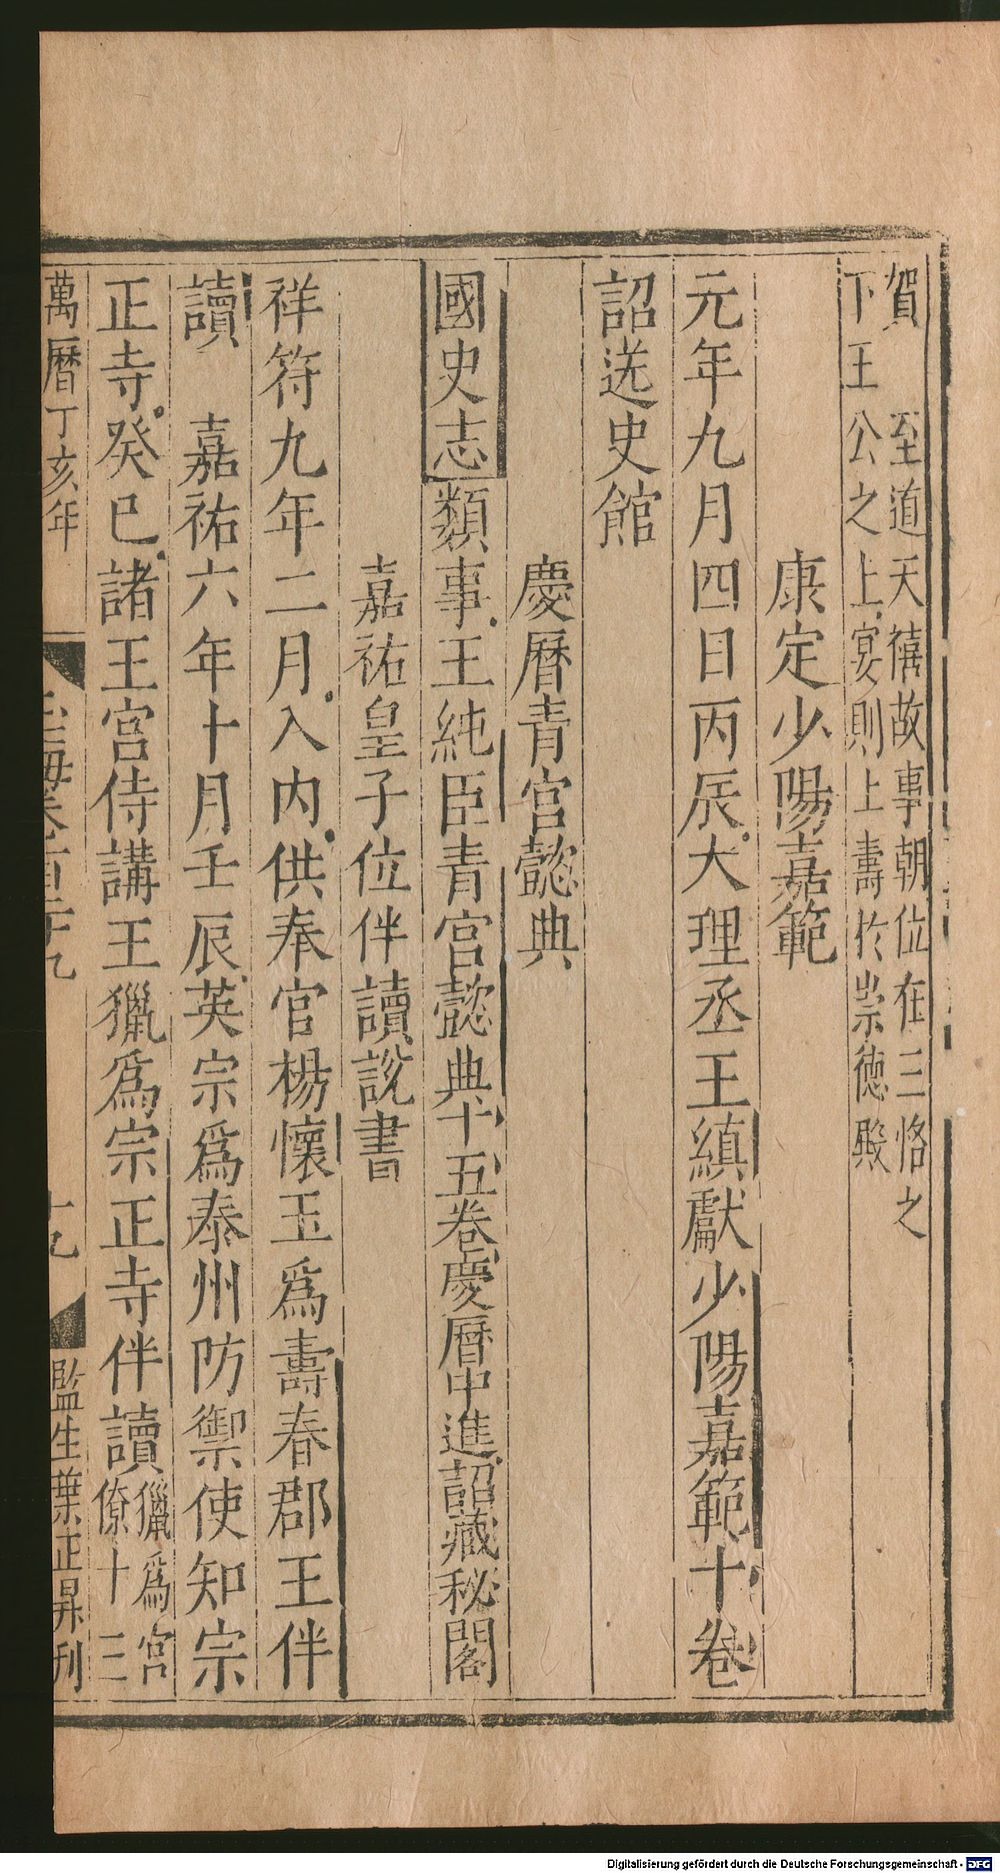 賀　至道天禧故事朝位在三恪之
下王公之上宴則上壽於崇德殿
康定少陽嘉範
元年九月四日丙辰大理丞王縝獻少陽嘉範十卷
詔送史館
慶曆青宮懿典
國史志類事王純臣青宮懿典十五卷慶曆中進詔藏秘閣
嘉祐皇子位伴讀說書
祥符九年二月入內供奉官楊懷玉爲壽春郡王伴
讀　嘉祐六年十月壬辰英宗爲泰州防禦使知宗
正寺癸巳諸王宮侍講王獵爲宗正寺伴讀獵爲宮
僚十三
萬曆丁亥年
玉海卷百二十九
十九
監生葉正昇刊
Digitalisierung gefördert durch die Deutsche Forschungsgemeinschaft - DFG